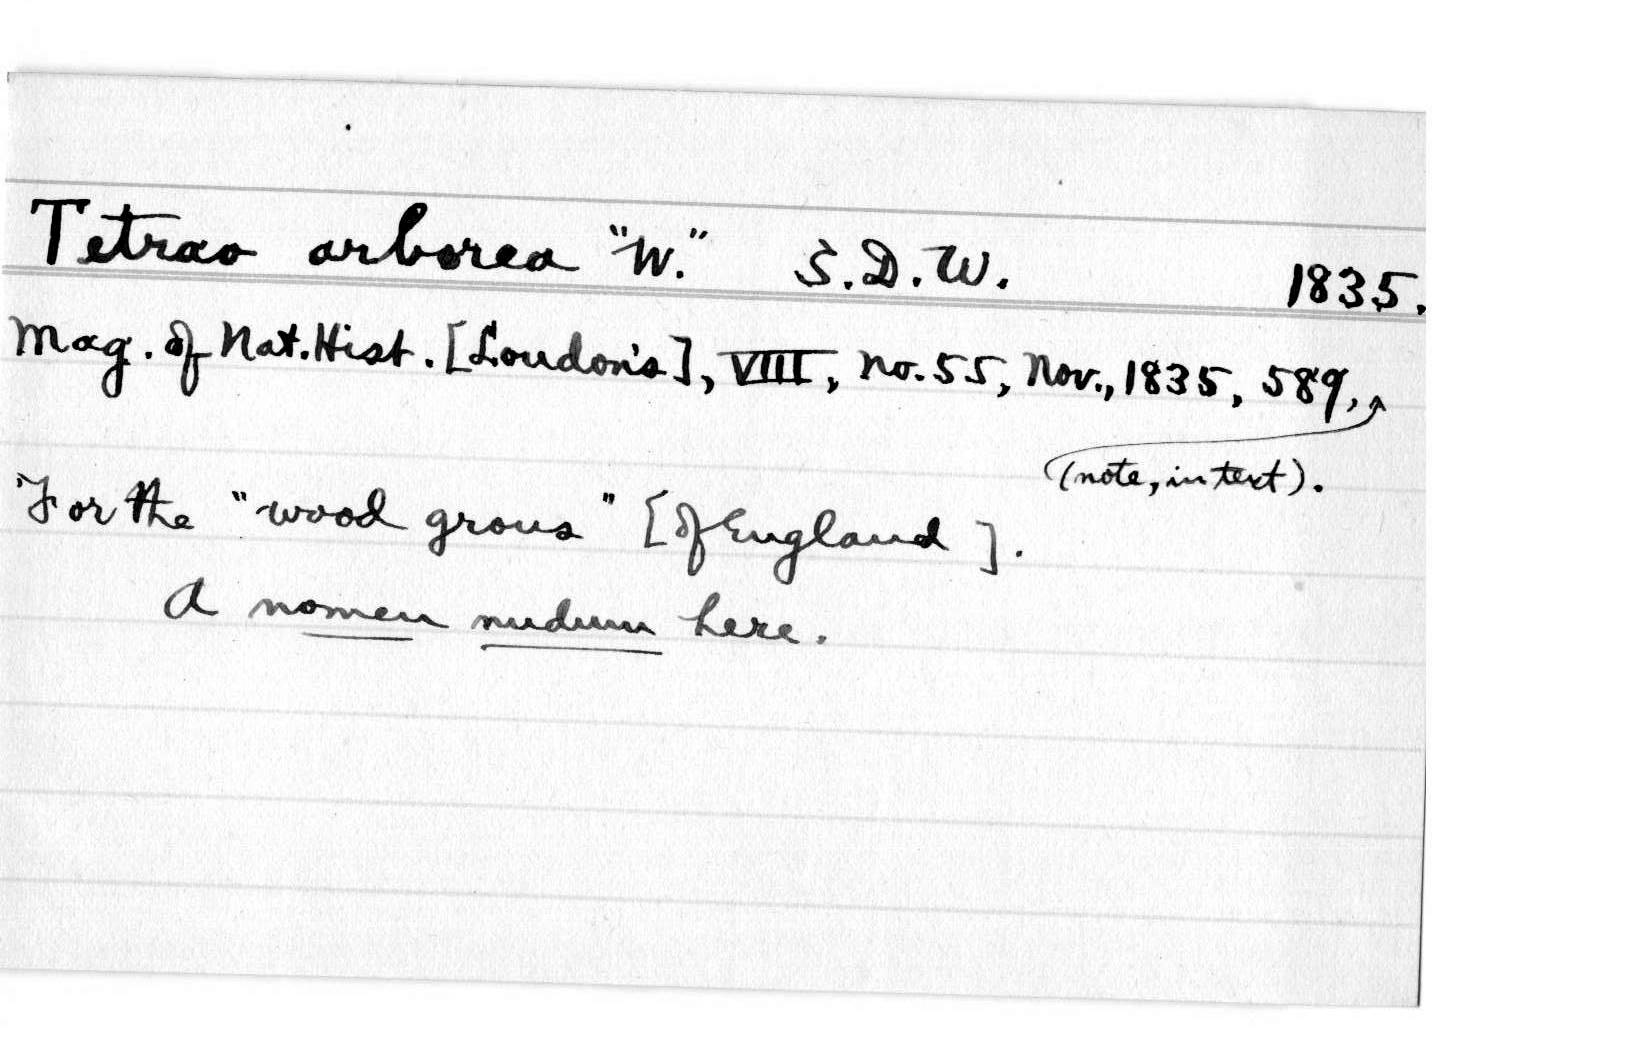 Tetrao arborea "W." S.D.W. 1835.
Mag. of Nat. Hist. [Loudon's], VIII, no. 55, Nov., 1835, 589,
(note, in text).
For the "wood grous" [of England].
A nomen nudum here.